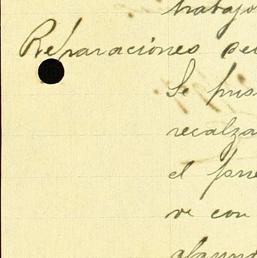 trabajo
Reparaciones
Se pus
recalza
el pue
ve con